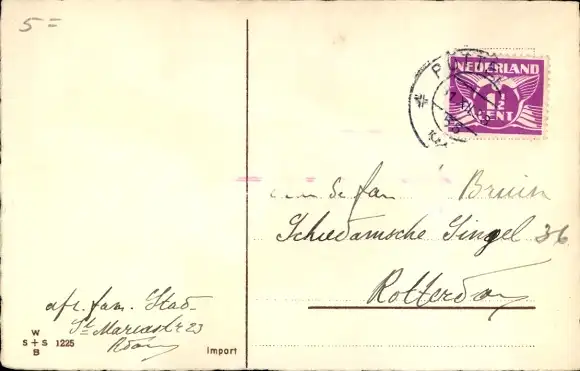 5=
NEDERLAND
1½
CENT
de fam Bruin
Schiedamsche Singel 36
Rotterdam
afz. fam. Stad
St Mariastr 23
Rdam
W
S + S 1225
B
Import